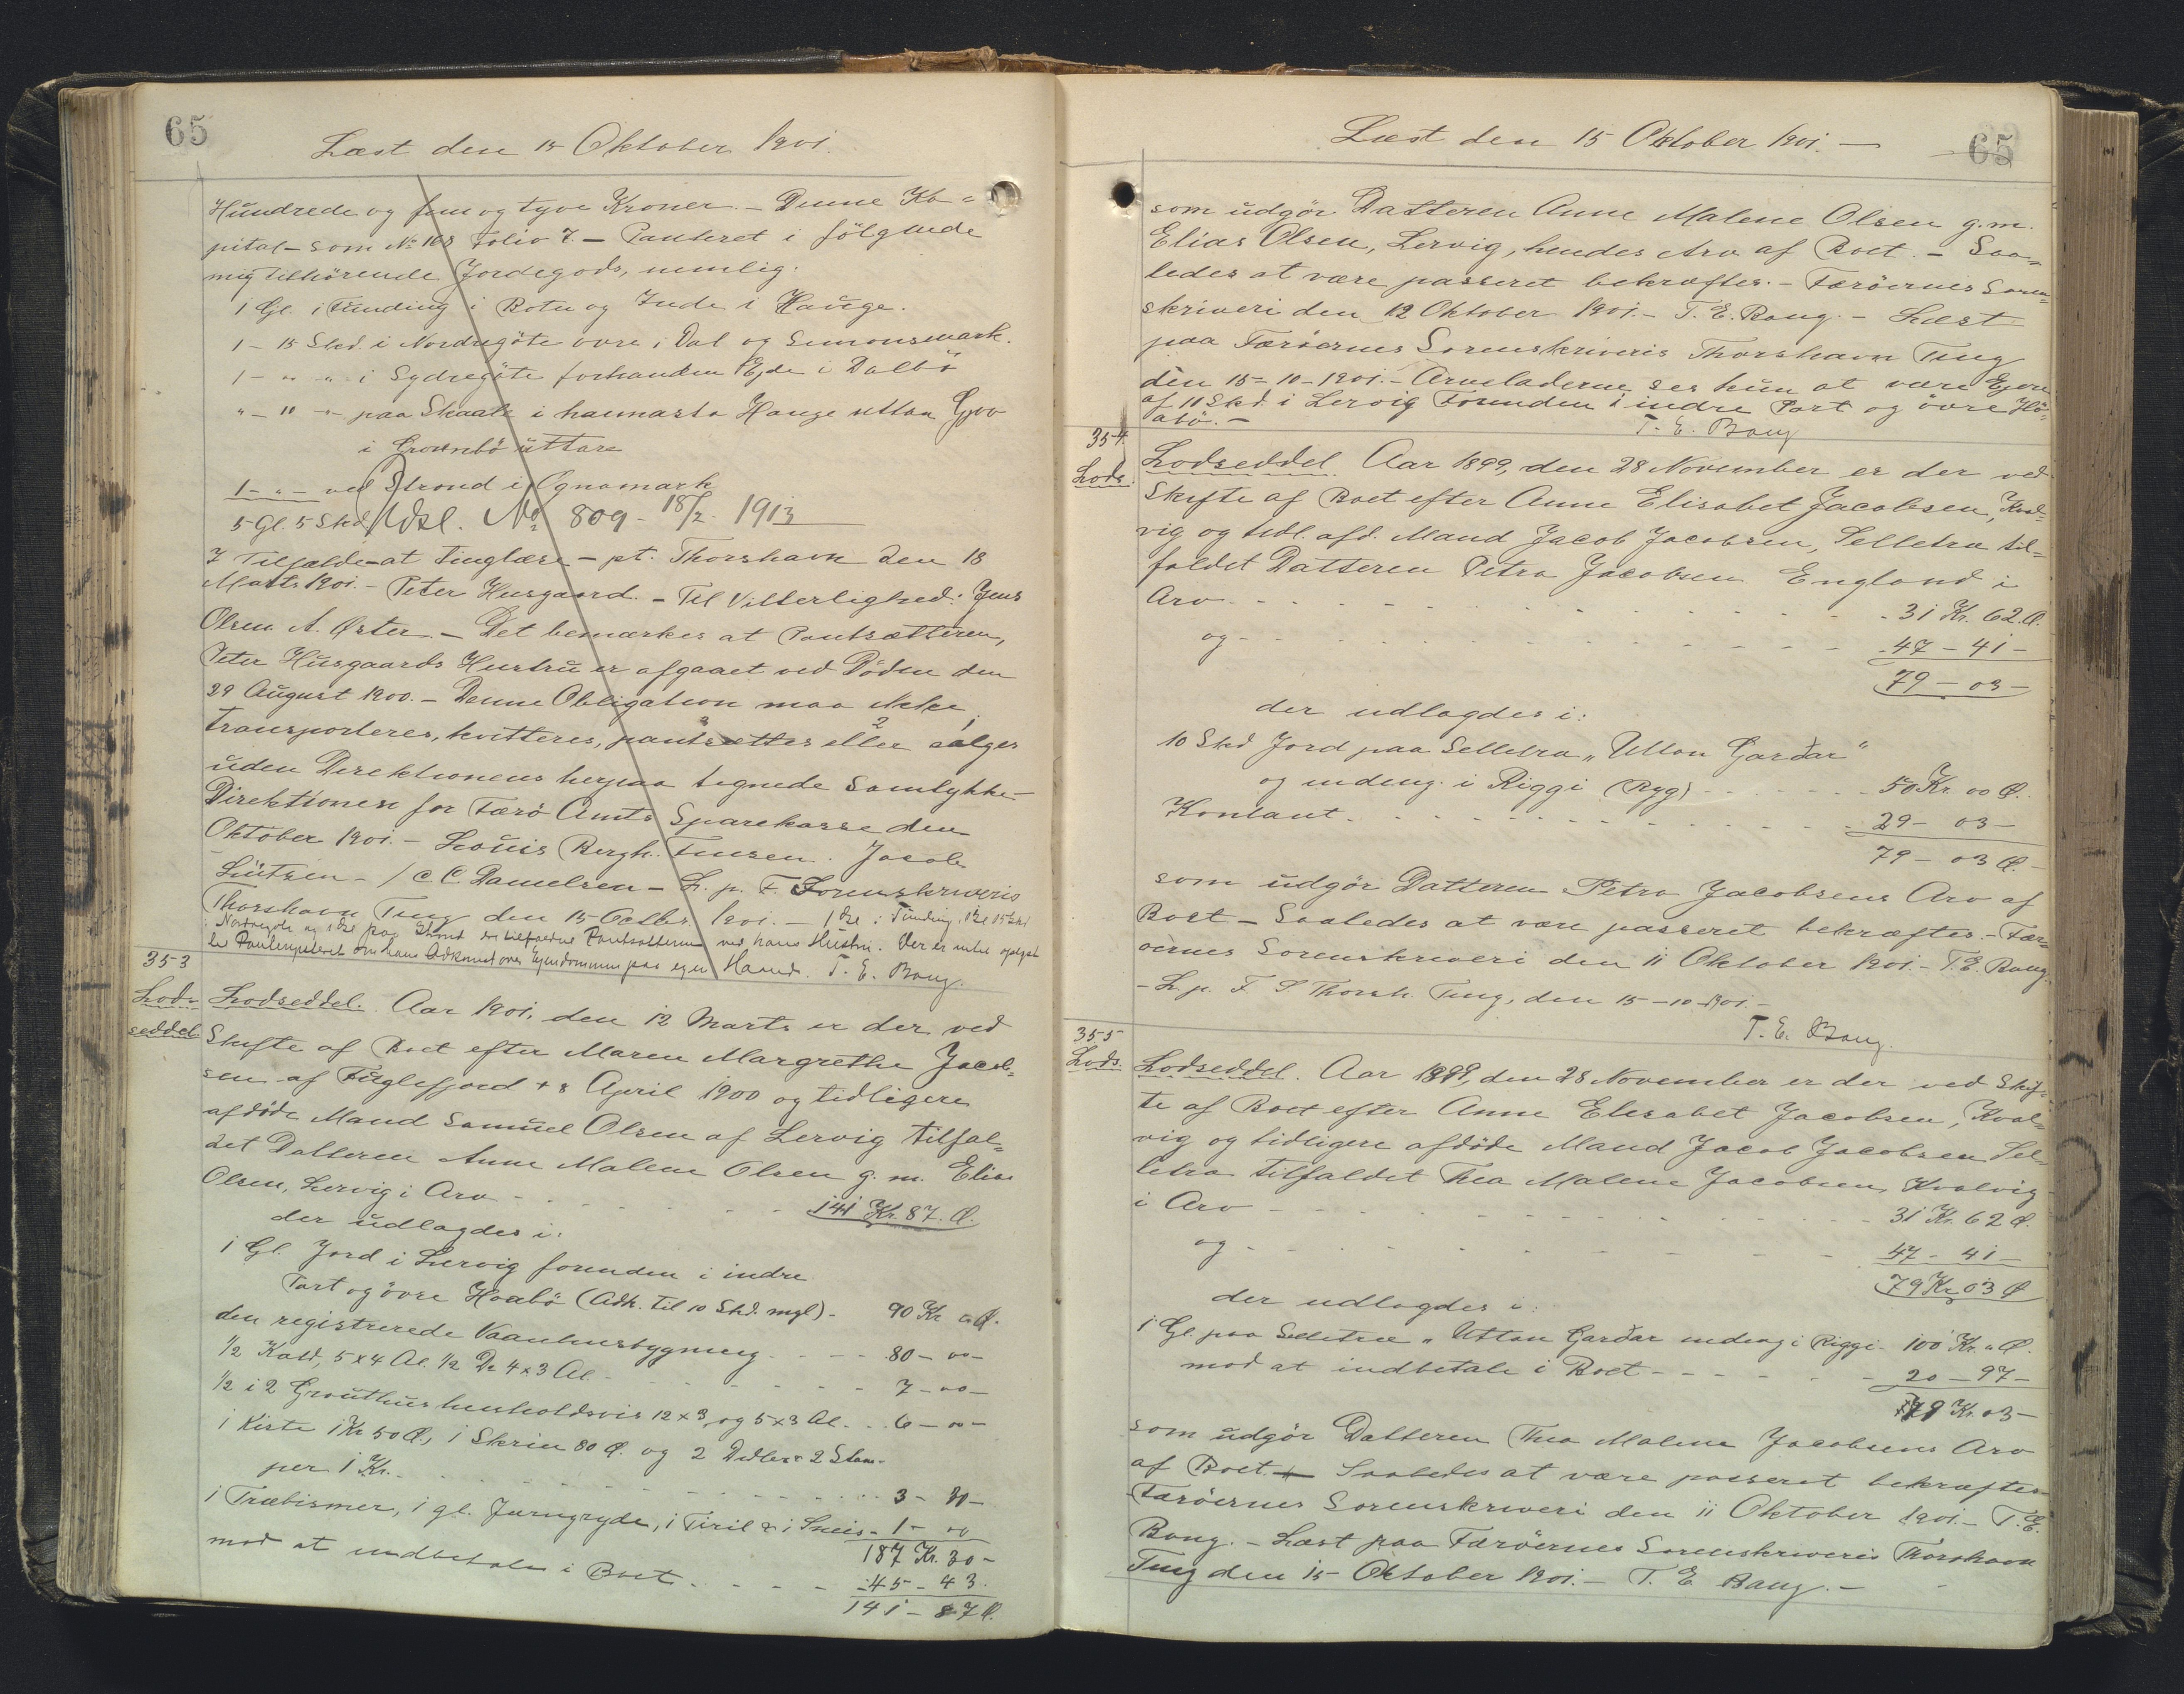 65
Læst den 15 Oktober 1901.
Hundrede og fem og tyve Kroner. – Denne Ka=
pital – som No 168 Folio 7. – Panteret i følgende
mig tilhørende Jordegods, nemlig.
1 Gl. i Funding i Botn og Inde i Hauge.
1 – 15 Skd. i Nordregöte ovre i Dal og Simonsmark.
1 – " " – i Sydregöte forhanden Ejde i Dalbö
" – 10 – " – paa Skaale i hannasta Hauge uttan Gjov
i Grovnbö uttare
1 – " – ved Strond i Ognamark
5 Gl. 5 Skd. Udsl. No 809 – 18/2 1913
I Tilfælde at tinglæse – pt. Thorshavn den 18
Marts 1901. – Peter Husgaard. – Til Vitterlighed: Jens
Olsen. A. Øster. – Det bemærkes at Pantsætteren,
Peter Husgaards Hustru er afgaaet ved Döden den
29 August 1900. – Denne Obligation maa ikke
2 1
transporteres, kvitteres, pantsættes eller sælges
uden Direktionens herpaa tegnede Samtykke –
Direktionen for Færö Amts Sparekasse den
Oktober 1901. – Louis Bergh. Ensen. Jacob
Lützen – / C. C. Danielsen – L. p. F. Sorenskriveris
Thorshavn Ting den 15 Octbr. 1901. – 1 Gl i Funding, 1 Gl 15 Skd
i Nordregöte og 1 Gl paa Strond er tilfaldne Pantsætteren ved hans Hustru. Der er intet oplyst
for Panteregisteret om hans Adkomst over Ejendommen paa egen Haand. T. E. Bang.
353
Lod=
seddel
Lodseddel. Aar 1901, den 12 Marts er der ved
Skifte af Boet efter Maren Margrethe Jacob=
sen af Fuglefjord + 8 April 1900 og tidligere
afdöde Mand Samuel Olsen af Lervig tilfal=
det Datteren Anne Malene Olsen g. m. Elias
Olsen, Lervig i Arv – – – 141 Kr. 87. Ø.
der udlagdes i:
1 Gl. Jord i Lervig forenden i indre
Part og övre Hoabö (Adk. til 10 Skd. mgl) – 90 Kr 00 Ø.
den registrerede Vaaenhusbygning – – – 80 – 00 –
1/2 Kald, 5 x 4 Al. 1/2 Do 4 x 3 Al. – – – 7 – 00 –
1/2 i 2 Grouthus henholdsvis 12 x 9, og 5 x 3 Al. . . 6 – 00 –
1 Kiste 1 Kr 50 Ø, 1 Skrin 80 Ø. og 2 Didler & 2 Stam=
per 1 Kr. – – – 3 – 30 –
1 Træbismer, 1 gl. Jerngryde, 1 Tiril & 1 Sneis – 1 – 00
187 Kr. 30 –
mod at indbetale i Boet – – – 45 – 43.
141 – 87 Ø.
Læst den 15 Oktober 1901. –
65
som udgör Datteren Anne Malene Olsen g. m.
Elias Olsen, Lervig, hendes Arv af Boet. – Saa=
ledes at være passeret bekræftes. – Færöernes Soren=
skriveri den 12 Oktober 1901. – T. E. Bang. – Læst
paa Færöernes Sorenskriveris Thorshavn Ting
den 15 = 10 – 1901. – Arveladerne ses kun at være Ejere
af 11 Skd. i Lervig Forenden i indre Part og övre Hö=
abö. – T. E. Bang
354
Lods.
Lodseddel. Aar 1899, den 28 November er der ved
Skifte af Boet efter Anne Elisabet Jacobsen, Kval=
vig og tidl. afd. Mand Jacob Jacobsen, Selletra til=
faldet Datteren Petra Jacobsen England i
Arv – – – 31 Kr. 62. Ø.
og – – – 47 – 41 –
79 – 03 –
der udlagdes i:
10 Skd Jord paa Selletra „Uttan Garðar“
og indeng. i Riggi (Ryg) – – – 50 Kr. 00 Ø.
Kontant – – – 29 – 03 –
79 – 03 Ø. –
som udgör Datteren Petra Jacobsens Arv af
Boet – Saaledes at være passeret bekræftes. – Fær=
öernes Sorenskriveri den 11 Oktober 1901. – T. E. Bang.
– L. p. F. S Thorsh. Ting, den 15 – 10 – 1901. –
T. E. Bang.
355
Lods.
Lodseddel. Aar 1899, den 28 November er der ved Skif=
te af Boet efter Anne Elisabet Jacobsen, Kval=
vig og tidligere afdöde Mand Jacob Jacobsen Sel=
letra tilfaldet Thea Malene Jacobsen, Kvalvig
i Arv – – – 31 Kr. 62 Ø.
og – – – 47 – 41 –
79 Kr 03 Ø
der udlagdes i:
1 Gl. paa Selletræ „ Uttan Garðar indeng i Riggi – 100 Kr. " Ø.
mod at indbetale i Boet – – – 20 – 97 –
79 Kr. 03 –
som udgör Datteren Thea Malene Jacobsens Arv
af Boet. – Saaledes at være passeret bekræftes
Færöernes Sorenskriveri den 11 Oktober 1901. – T. E.
Bang. – Læst paa Færöernes Sorenskriveris Thorshavn
Ting den 15 Oktober 1901. – T. E Bang. –